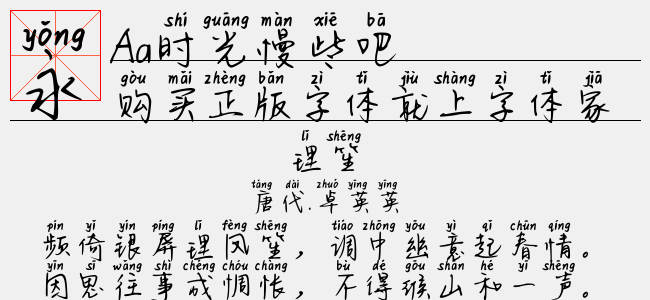 yǒng
永
shí guāng màn xiē bā
Aa时光慢些吧
gòu mǎi zhèng bǎn zì tǐ jiù shàng zì tǐ jiā
购买正版字体就上字体家
lǐ shēng
理笙
táng dài zhuó yīng yīng
唐代.卓英英
pín yǐ yín píng lǐ fèng shēng tiáo zhōng yōu yì qǐ chūn qíng
频倚银屏理凤笙，调中幽意起春情。
yīn sī wǎng shì chéng chóu chàng bù dé gōu shān hé yī shēng
因思往事成惆怅，不得缑山和一声。